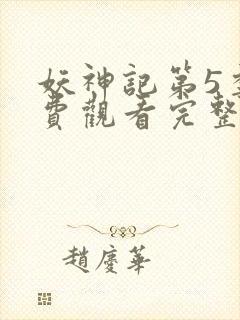 妖神記第5
費觀看完整
趙慶華